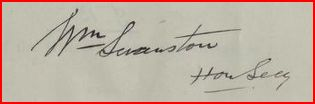 Wm Swanston
Hon Secy